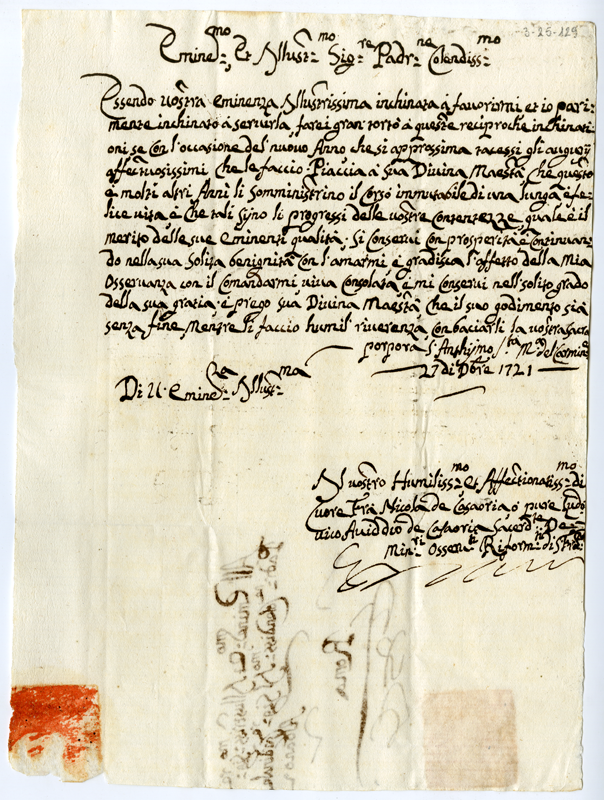 -3-25-129
Eminen.mo, et Illustr.mo Sig.re Padr.ne Colendiss.mo
Essendo vostra eminenza Illustrissima inchinata à favorirmi et io pari-
mente inchinato à servirla, farei gran torto à queste reciproche inchinati-
oni se con l'occasione del nuovo Anno che si approssima tacessi gli augurij
affettuosissimi che le faccio. Piaccia à Sua Divina Maestà che questo
è molti altri Anni li somministrino il corso immutabile di una lunga è fe-
lice vita è che tali syno li progressi delle vostre contentezze quale è il
merito delle sue eminenti qualità. Si conservi con prosperità è continuan-
do nella sua solita benignità con l'amarmi è gradisca l'affetto della Mia
Osservanza con il Comandarmi viva consolata è mi conservi nell'solito grado
della sua gratia. è prego sua Divina Maestà che il suo godimento sia
senza fine, Mentre li faccio humil riverenza con baciarli la vostra sacra
porpora S. Anthymo S.ta M.a del Carmine
27 di Xbre 1721
Di V. Eminen.za Illustr.ma
Il vostro Humiliss.mo et Affettionatiss.mo di
Cuore Frà Nicola de Casaoria ò pure Ludo-
vico Aviddio de Casaoria Sacerd.te De
Min.ri Osserv.ti Riform.ti di
Roma